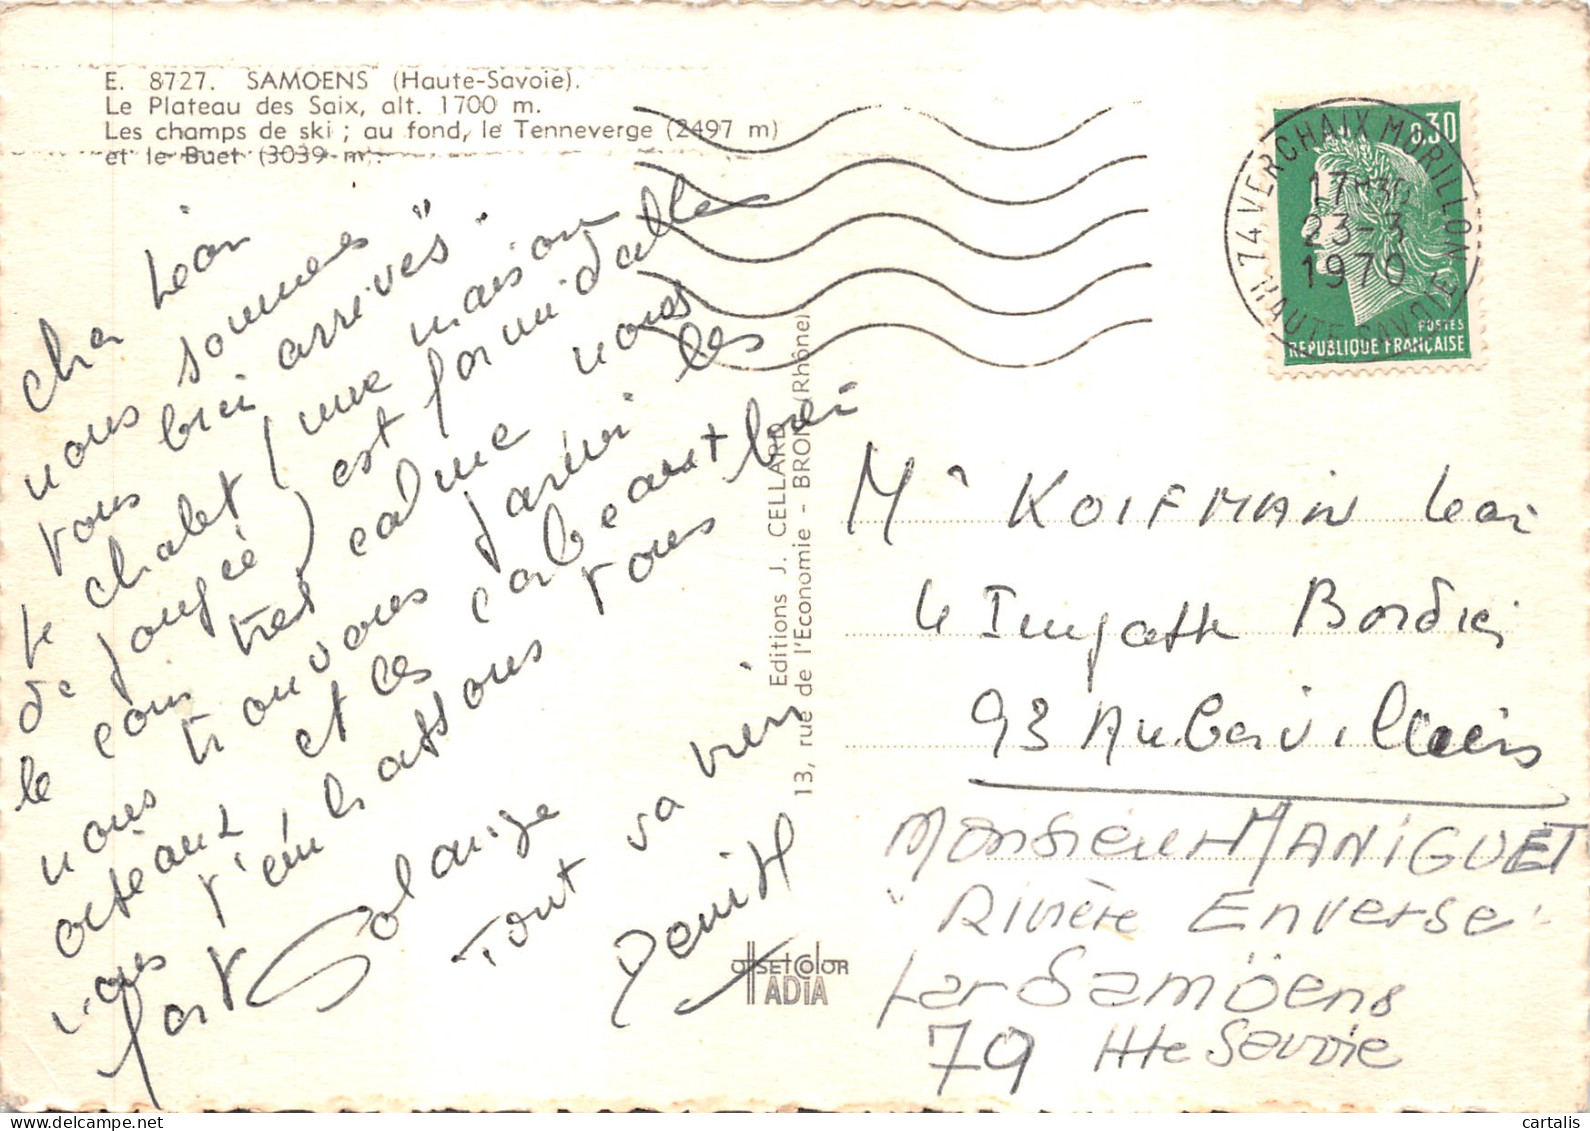 E. 8727. SAMOENS (Haute-Savoie).
Le Plateau des Saix, alt. 1700 m.
Les champs de ski ; au fond, le Tenneverge (2497 m)
et le Buet (3039 m).
cher Léon
nous sommes
tous bien arrivés
le chalet (une maison
de
le coin est formidable
très calme nous
nous trouvons parmi les
et les
vous t'embrassons tous
fort Solange
Tout va bien
Editions J. CELLARD
13, rue de l'Economie - BRON (Rhône)
OFFSET COLOR
ADIA
0,30
POSTES
REPUBLIQUE FRANÇAISE
74 VERCHAIX MORILLON
17H30
23-3
1970
HAUTE SAVOIE
Mr KOIFMAN Leon
4 Bordier
93 Aubervilliers
Monsieur MANIGUET
Rivière Enverse
par Samöens
79 Hte Savoie